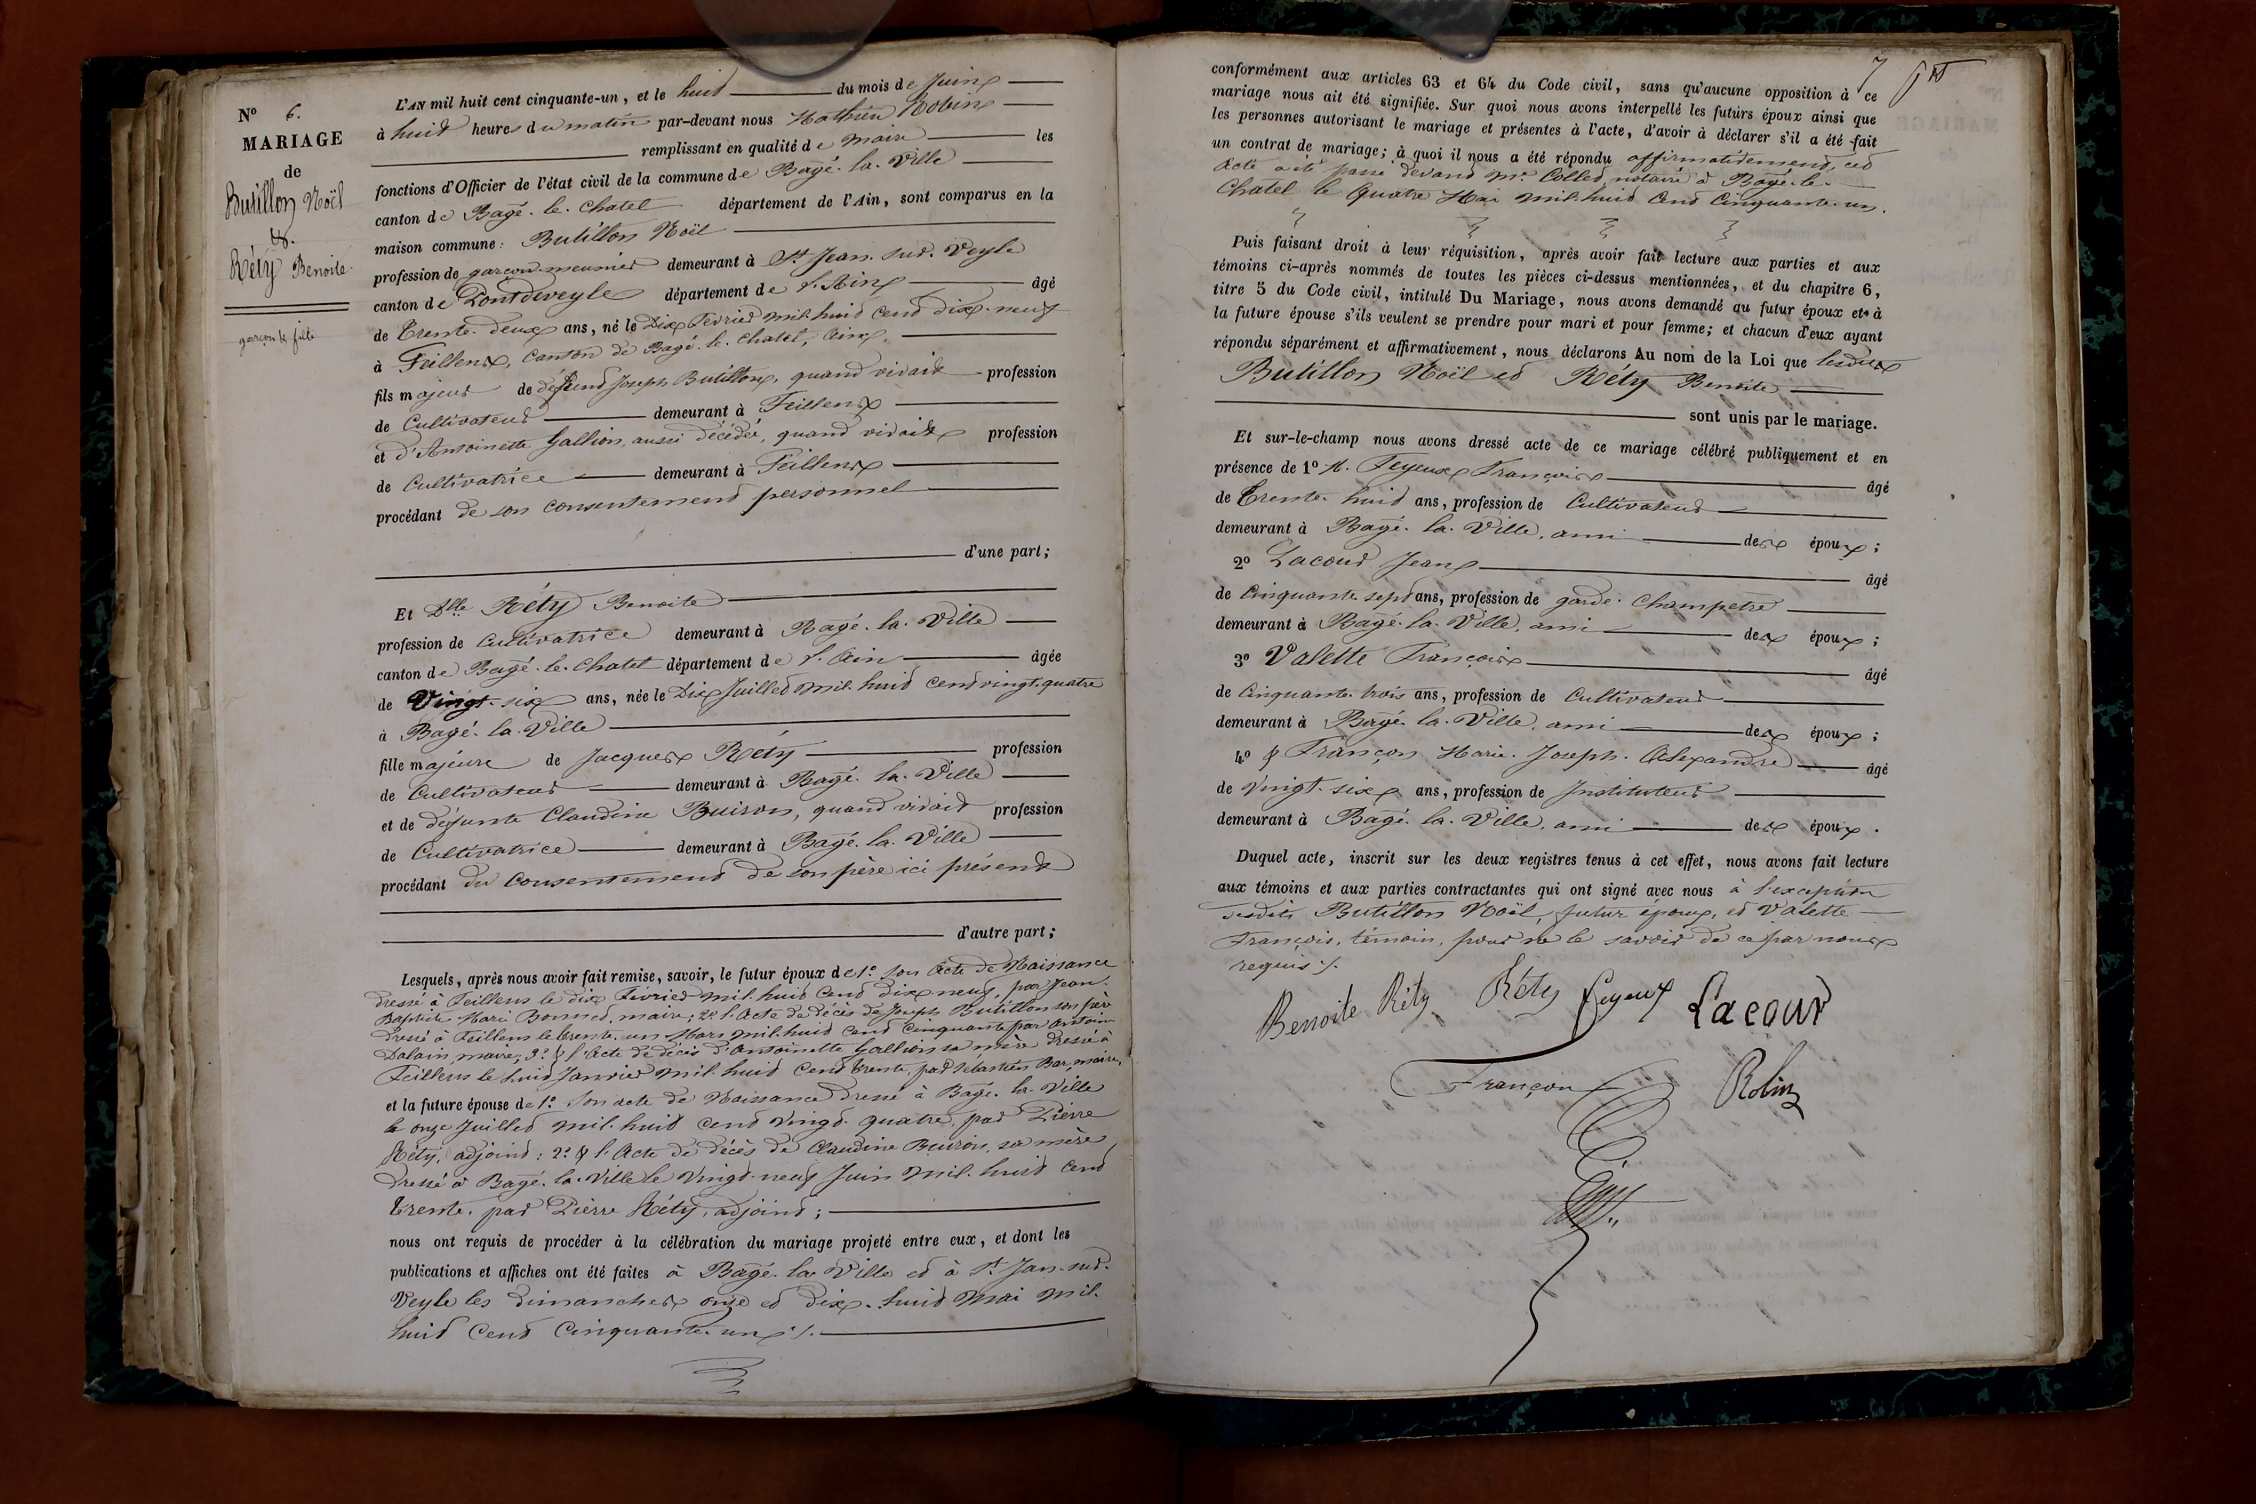 N° 6.
MARIAGE
de
Butillon Noël
&.
Réty Benoite.
garçon & fille
L'AN mil huit cent cinquante-un, et le huit du mois de Juin
à huit heures du matin par-devant nous Mathieu Robin
remplissant en qualité de maire les
fonctions d'Officier de l'état civil de la commune de Bagé-la-Ville
canton de Bagé-le-Chatel département de l'Ain, sont comparus en la
maison commune: Butillon Noël
profession de garçon-meunier demeurant à St Jean-sur-Veyle
canton de Pontdeveyle département de l'Ain âgé
de Trente-deux ans, né le Dix Février mil-huit cent dix-neuf
à Feillens, canton de Bagé-le-Chatel, Ain,
fils majeur de défunt Joseph Butillon, quand vivait profession
de Cultivateur demeurant à Feillens
et d'Antoinette Gallion, aussi décédée, quand vivait profession
de Cultivatrice demeurant à Feillens
procédant de son consentement personnel
d'une part;
Et Dlle Réty Benoite
profession de Cultivatrice demeurant à Bagé-la-Ville
canton de Bagé-le-Chatel département de l'Ain âgée
de Vingt-six ans, née le Dix Juillet mil-huit cent vingt-quatre
à Bagé-la-Ville
fille majeure de Jacques Réty profession
de Cultivateur demeurant à Bagé-la-Ville
et de défunte Claudine Buiron, quand vivait profession
de Cultivatrice demeurant à Bagé-la-Ville
procédant du consentement de son père ici présent
d'autre part;
Lesquels, après nous avoir fait remise, savoir, le futur époux de 1° son Acte de Naissance
dressé à Feillens le dix Février mil-huit cent dix-neuf, par Jean-
Baptiste Marie Bonnet, maire; 2° l'Acte de décès de Joseph Butillon son père
dressé à Feillens le trente-un Mars mil-huit cent cinquante par Antoine
maire; 3° & l'Acte de décès d'Antoinette Gallion sa mère dressé à
Feillens le huit Janvier mil-huit cent trente, par Sébastien maire,
et la future épouse de 1° son acte de Naissance dressé à Bagé-la-Ville
le onze Juillet mil-huit cent vingt-quatre, par Pierre
Réty, adjoint; 2° & l'Acte de décès de Claudine Buiron, sa mère,
dressé à Bagé-la-Ville le vingt-neuf Juin mil-huit cent
trente, par Pierre Réty, adjoint;
nous ont requis de procéder à la célébration du mariage projeté entre eux, et dont les
publications et affiches ont été faites à Bagé-la-Ville et à St Jean-sur-
Veyle les dimanches onze et dix-huit Mai mil-
huit cent cinquante-un ./.
conformément aux articles 63 et 64 du Code civil, sans qu'aucune opposition à ce
mariage nous ait été signifiée. Sur quoi nous avons interpellé les futurs époux ainsi que
les personnes autorisant le mariage et présentes à l'acte, d'avoir à déclarer s'il a été fait
un contrat de mariage; à quoi il nous a été répondu affirmativement, cet
Acte a été passé devant Me Collet notaire à Bagé-le-
Chatel le quatre Mai mil-huit cent cinquante-un.
Puis faisant droit à leur réquisition, après avoir fait lecture aux parties et aux
témoins ci-après nommés de toutes les pièces ci-dessus mentionnées, et du chapitre 6,
titre 5 du Code civil, intitulé Du Mariage, nous avons demandé au futur époux et à
la future épouse s'ils veulent se prendre pour mari et pour femme; et chacun d'eux ayant
répondu séparément et affirmativement, nous déclarons Au nom de la Loi que lesdits
Butillon Noël et Réty Benoite
sont unis par le mariage.
Et sur-le-champ nous avons dressé acte de ce mariage célébré publiquement et en
présence de 1° M. Feyeux François âgé
de Trente-huit ans, profession de Cultivateur
demeurant à Bagé-la-Ville, ami des époux;
2° Lacour Jean âgé
de Cinquante-sept ans, profession de garde-Champetre
demeurant à Bagé-la-Ville, ami des époux;
3° Valette François âgé
de Cinquante-trois ans, profession de Cultivateur
demeurant à Bagé-la-Ville, ami des époux;
4° & Françon Marie-Joseph-Alexandre âgé
de Vingt-six ans, profession de Instituteur
demeurant à Bagé-la-Ville, ami des époux.
Duquel acte, inscrit sur les deux registres tenus à cet effet, nous avons fait lecture
aux témoins et aux parties contractantes qui ont signé avec nous à l'exception
desdits Butillon Noël, futur époux, et Valette
François, témoin, pour ne le savoir de ce par nous
requis ./.
Benoite Réty Réty Feyeux Lacour
Françon Robin